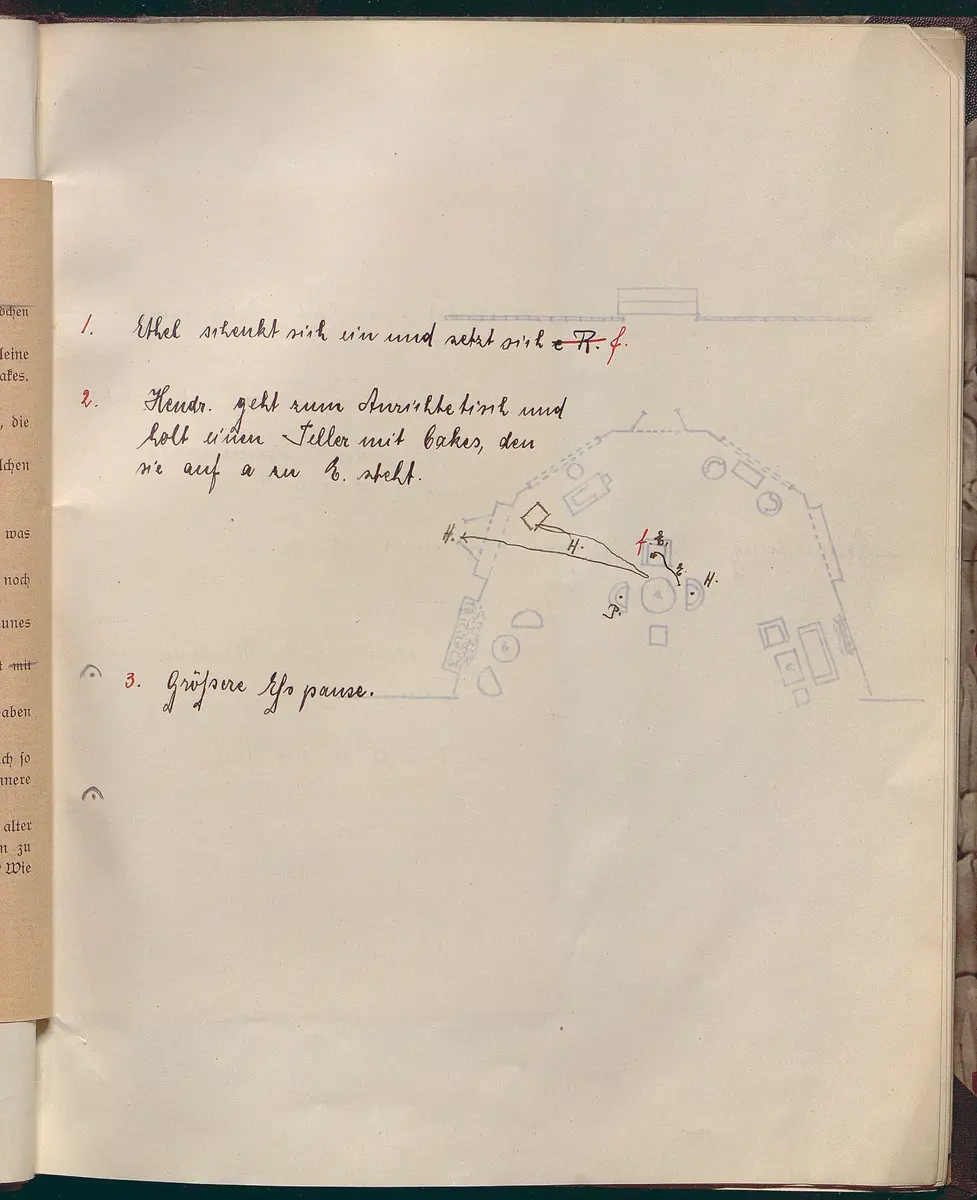 öchen
leine
akes.
, die
lchen
was
noch
unes
t mit
aben
ch so
nnere
alter
n zu
Wie
1. Ethel schenkt sich ein und setzt sich e R. f.
2. Hendr. geht zum Anrichtetisch und
holt einen Teller mit Cakes, den
sie auf a zu E. steht.
H.
H.
f. E.
E.
H.
P.
a
3. Größere Eßpause.